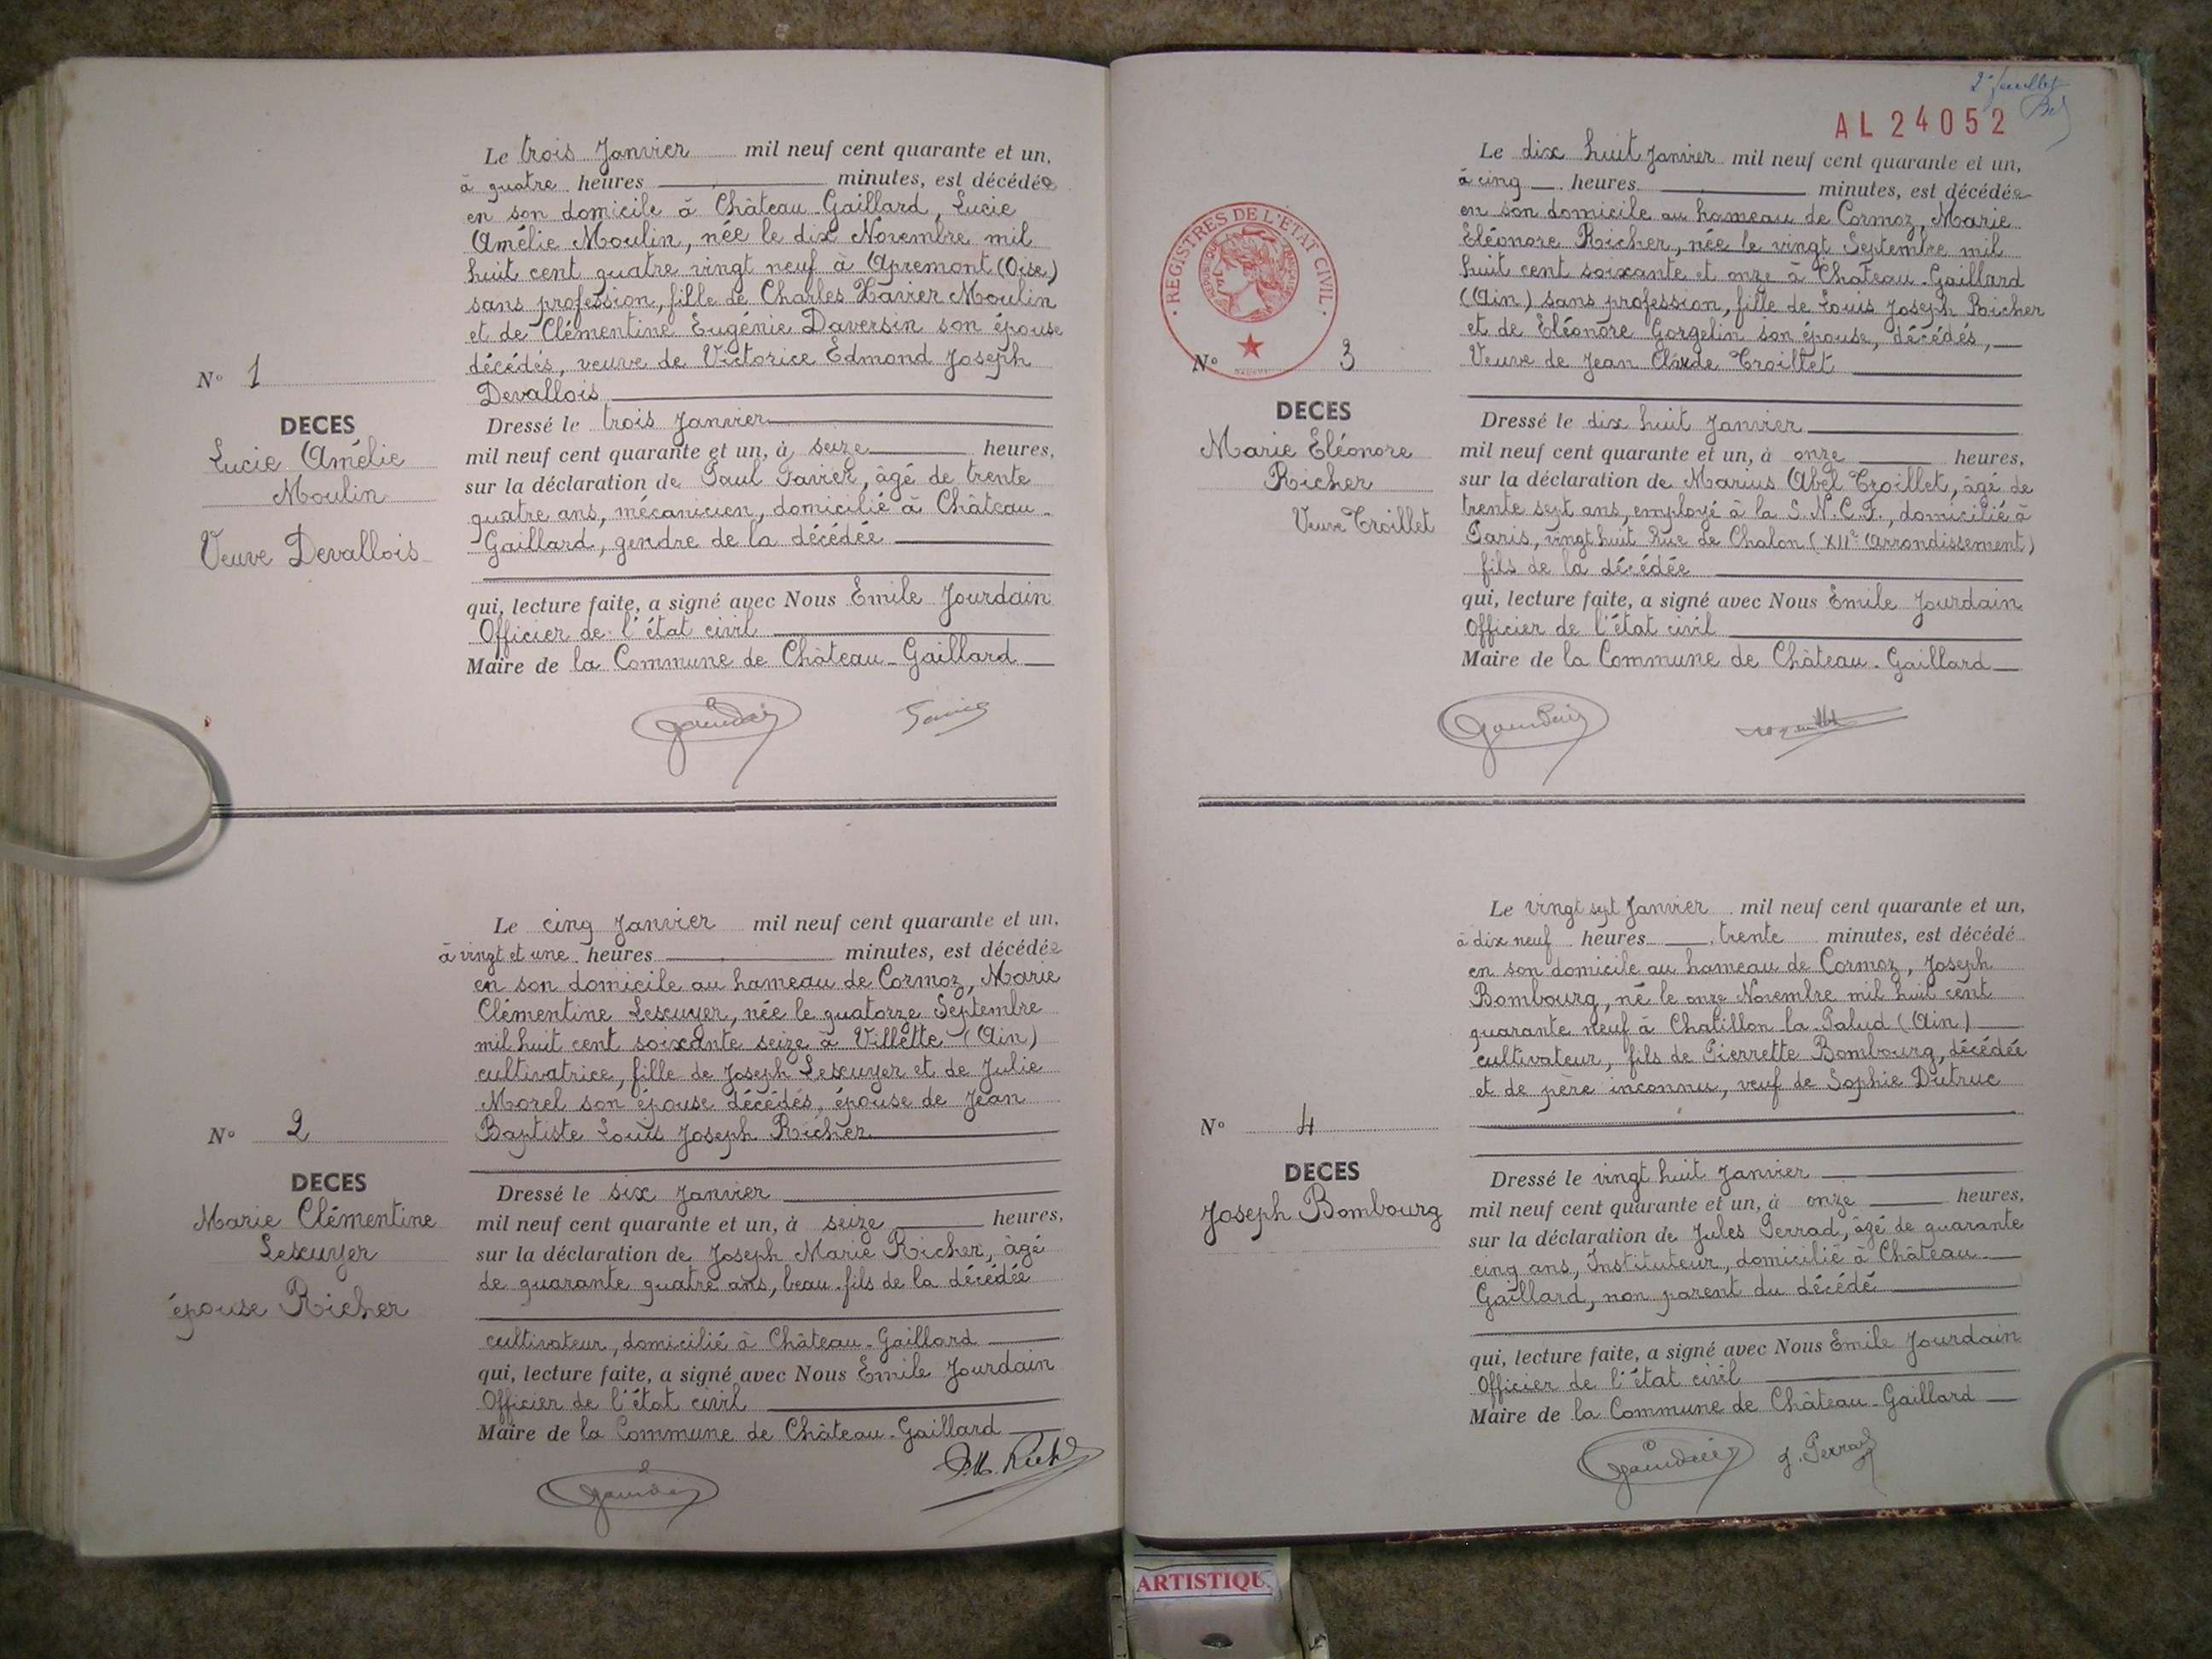 Le trois Janvier mil neuf cent quarante et un,
à quatre heures minutes, est décédée
en son domicile à Château-Gaillard, Lucie
Amélie Moulin, née le dix Novembre mil
huit cent quatre vingt neuf à Apremont (Oise)
sans profession, fille de Charles Xavier Moulin
et de Clémentine Eugénie Daversin son épouse
décédés, veuve de Victorice Edmond Joseph
Devallois
N° 1
DECES
Lucie Amélie
Moulin
Veuve Devallois
Dressé le trois Janvier
mil neuf cent quarante et un, à seize heures,
sur la déclaration de Paul Favier, âgé de trente
quatre ans, mécanicien, domicilié à Château-
Gaillard, gendre de la décédée
qui, lecture faite, a signé avec Nous Emile Jourdain
Officier de l'état civil
Maire de la Commune de Château-Gaillard
Jourdain
Le cinq Janvier mil neuf cent quarante et un,
à vingt et une heures minutes, est décédée
en son domicile au hameau de Cormoz, Marie
Clémentine Lescuyer, née le quatorze Septembre
mil huit cent soixante seize à Villette (Ain)
cultivatrice, fille de Joseph Lescuyer et de Julie
Morel son épouse décédés, épouse de Jean
Baptiste Louis Joseph Richer
N° 2
DECES
Marie Clémentine
Lescuyer
épouse Richer
Dressé le six Janvier
mil neuf cent quarante et un, à seize heures,
sur la déclaration de Joseph Marie Richer, âgé
de quarante quatre ans, beau-fils de la décédée
cultivateur, domicilié à Château-Gaillard
qui, lecture faite, a signé avec Nous Emile Jourdain
Officier de l'état civil
Maire de la Commune de Château-Gaillard
Jourdain
2e feuillet
AL 24052
Le dix huit Janvier mil neuf cent quarante et un,
à cinq heures minutes, est décédée
en son domicile au hameau de Cormoz, Marie
Eléonore Richer, née le vingt Septembre mil
huit cent soixante et onze à Château-Gaillard
(Ain) sans profession, fille de Louis Joseph Richer
et de Eléonore Gorgelin son épouse, décédés,
Veuve de Jean Claude Troillet
REGISTRES DE L'ETAT CIVIL
N° 3
DECES
Marie Eléonore
Richer
Veuve Troillet
Dressé le dix huit Janvier
mil neuf cent quarante et un, à onze heures,
sur la déclaration de Marius Abel Troillet, âgé de
trente sept ans, employé à la S.N.C.F., domicilié à
Paris, vingt huit Rue de Chalon (XIIe Arrondissement)
fils de la décédée
qui, lecture faite, a signé avec Nous Emile Jourdain
Officier de l'état civil
Maire de la Commune de Château-Gaillard
Jourdain
Le vingt sept Janvier mil neuf cent quarante et un,
à dix neuf heures trente minutes, est décédé
en son domicile au hameau de Cormoz, Joseph
Bombourg, né le onze Novembre mil huit cent
quarante neuf à Chatillon-la-Palud (Ain)
cultivateur, fils de Pierrette Bombourg, décédée
et de père inconnu, veuf de Sophie Dutruc
N° 4
DECES
Joseph Bombourg
Dressé le vingt huit Janvier
mil neuf cent quarante et un, à onze heures,
sur la déclaration de Jules Perrad, âgé de quarante
cinq ans, Instituteur, domicilié à Château
Gaillard, non parent du décédé
qui, lecture faite, a signé avec Nous Emile Jourdain
Officier de l'état civil
Maire de la Commune de Château-Gaillard
Jourdain J. Perrad
ARTISTIQU